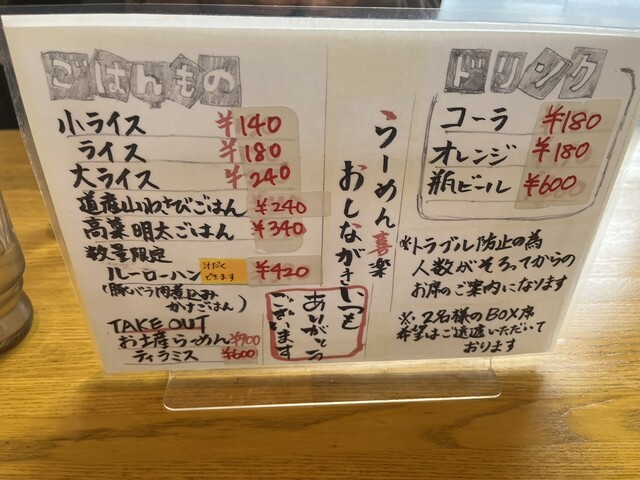 ごはんもの
小ライス ¥140
ライス ¥180
大ライス ¥240
道産山わさびごはん ¥240
高菜明太ごはん ¥340
数量限定
ルーローハン 汁だくできます ¥420
(豚バラ肉煮込みかけごはん)
TAKE OUT
お土産らーめん ¥700
ティラミス ¥600
らーめん喜楽
おしながき
いつも
ありがとう
ございます
ドリンク
コーラ ¥180
オレンジ ¥180
瓶ビール ¥600
※トラブル防止の為
人数がそろってからの
お席のご案内になります
※2名様のBOX席
希望はご遠慮いただいて
おります